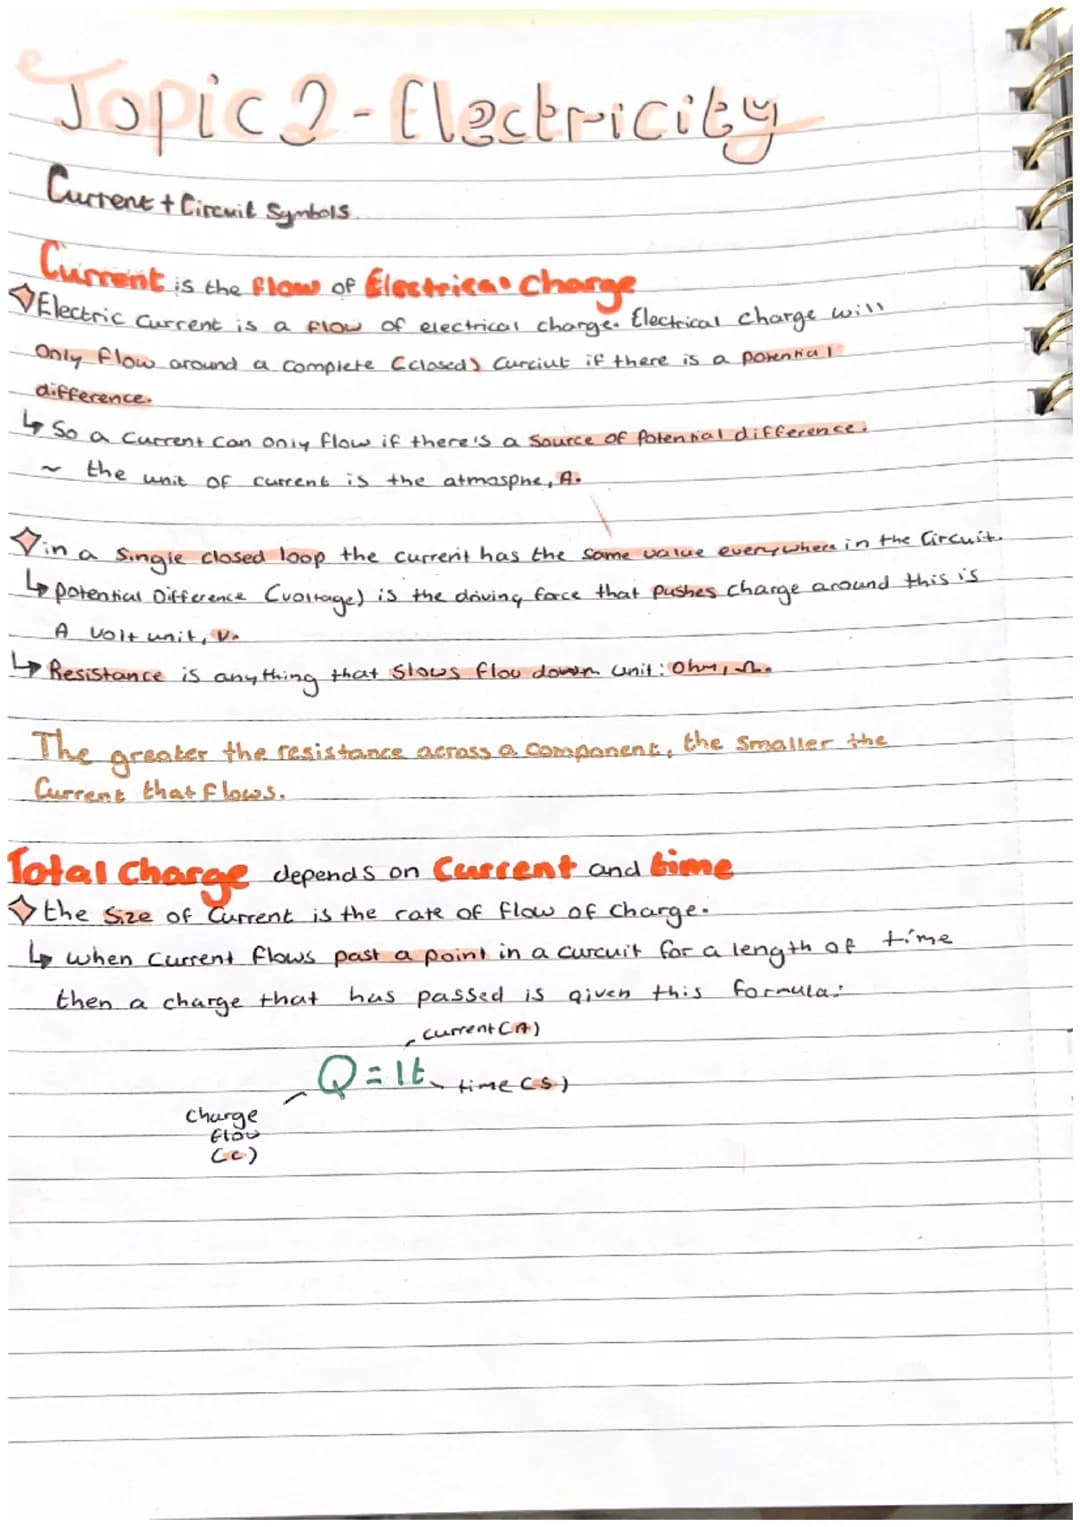 Topic 2 - Electricity
Current + Circuit Symbols.
Current is the flow of Electrical Charge
Electric Current is a flow of electrical charge. Electrical charge will
Only flow around a complete (closed) Curciut if there is a potential
difference.
↳ So a Current can only flow if there's a Source of Potential difference.
~ the unit of current is the atmasphe, A.
in a Single closed loop the current has the same value everywhere in the Circuit.
↳ potential Difference (voltage) is the driving force that pushes charge around this is
A volt unit, V.
↳ Resistance is anything that slows flow down. unit: Ohm, Ω.
The greater the resistance across a component, the smaller the
Current that flows.
Total Charge depends on Current and time
the size of Current is the rate of flow of Charge.
↳ when Current flows past a point in a curcuit for a length of time
then a charge that has passed is given this formula:
current (A)
Q = It
time (s)
Charge
flow
(c)